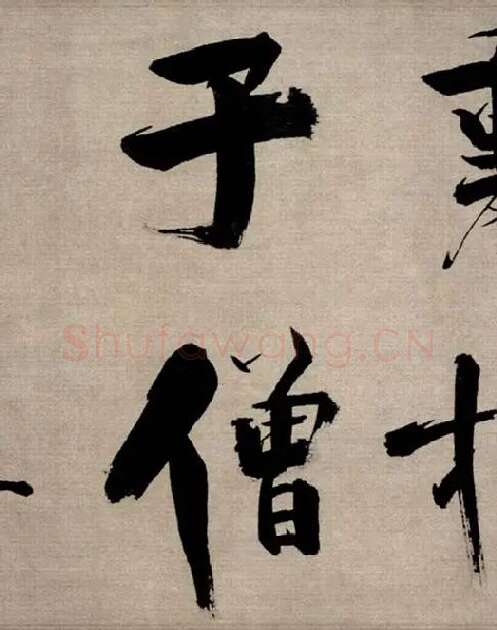 子僧
Shufawang.CN